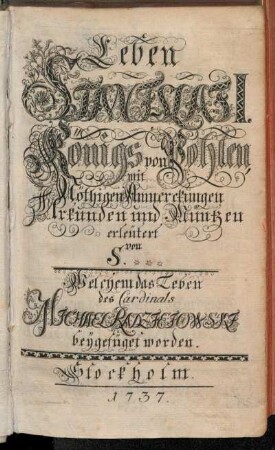 Leben
STANISLAI I.
Königs von Pohlen,
mit
Nöthigen Anmerckungen
Urkunden und Müntzen
erleutert
von
S. * * *
Welchem das Leben
des Cardinals
MICHAEL RADZIEIOWSKI
beÿgefüget worden.
Stockholm.
1737.